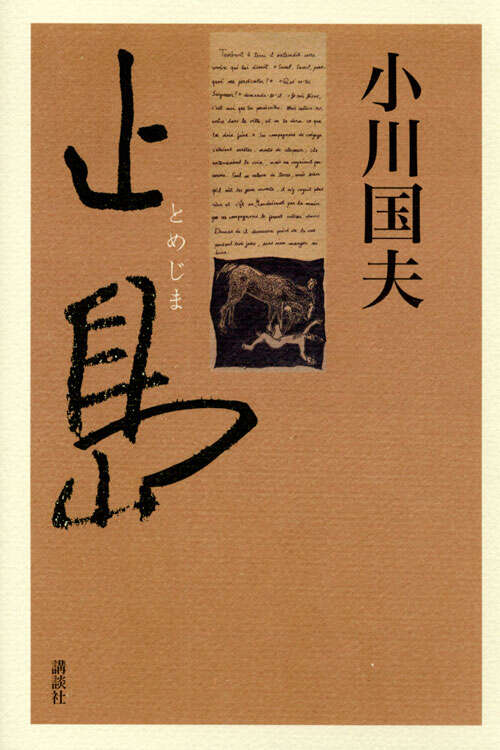 小川国夫
止島
とめじま
Tombant à terre il entendit une
voix qui lui disait: « Saul, Saul, pour-
quoi me persécutes-
Seigneur? » demanda-t-il. « Je suis Jésus,
c'est moi que tu persécutes. Mais relève-toi,
entre dans la ville, et on te dira ce que
tu dois faire. » Les compagnons de voyage
s'étaient arrêtés, muets de stupeur; ils
entendaient la voix, mais ne voyaient per-
sonne. Saul se releva de terre, mais bien
qu'il eût les yeux ouverts, il n'y voyait plus
rien et conduisant par la main
que ses compagnons le firent entrer dans
Damas
pendant trois jours, sans rien manger ni
boire.
講談社